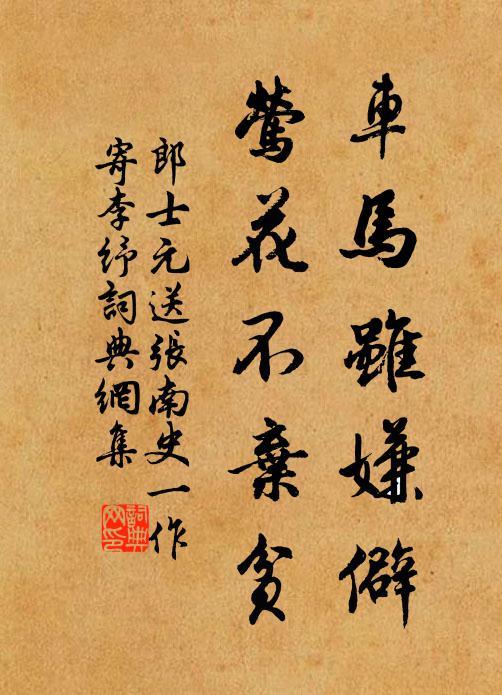 車馬雖嫌僻
鶯花不棄貧
郎士元送張南史一作
寄李紓詞典網集
詞典
网印